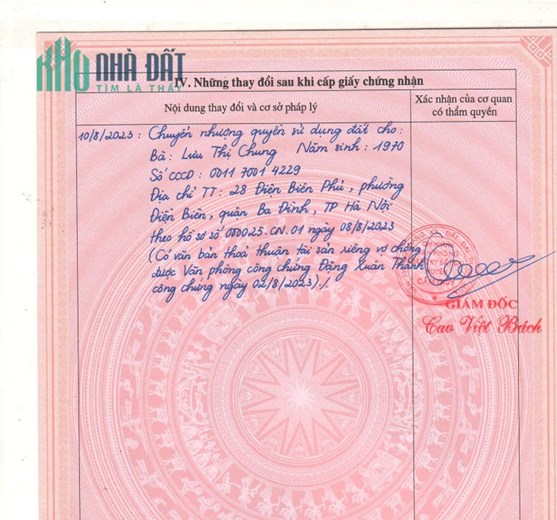 KHO NHÀ ĐẤT
TÌM LÀ THẤY
IV. Những thay đổi sau khi cấp giấy chứng nhận
Nội dung thay đổi và cơ sở pháp lý
Xác nhận của cơ quan
có thẩm quyền
10/8/2023: Chuyển nhượng quyền sử dụng đất cho:
Bà: Lưu Thị Chung Năm sinh: 1970
Số CCCD: 0011 7001 4229
Địa chỉ TT: 28 Điện Biên Phủ, phường
Điện Biên, quận Ba Đình, TP Hà Nội
theo hồ sơ số 000025.CN.01 ngày 08/8/2023
(Có văn bản thoả thuận tài sản riêng vợ chồng
được Văn phòng công chứng Đặng Xuân Thanh
công chứng ngày 02/8/2023)./.
GIÁM ĐỐC
Cao Việt Bách